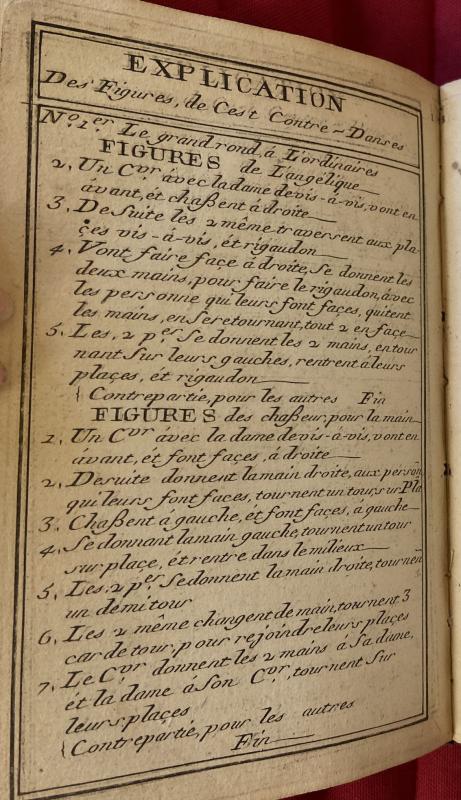 EXPLICATION
Des Figures, de Cest Contre-Danses
No. 1.er Le grand rond, á L'ordinaires
FIGURES de L'angélique
2. Un C.vr ávec la dame de vis-á-vis, vont en
ávant, ét chaßent á droite
3. De suite les 2 même traversent aux pla-
çes vis-á-vis, ét rigaudon
4. Vont faire façe á droite, se donnent les
deux mains, pour faire le rigaudon, ávec
les personne qui leurs font façes, quitent
les mains, en se retournant, tout 2 en façe
5. Les, 2 p.er se donnent les 2 mains, en tour
nant sur leurs gauches, rentrent á leurs
plaçes, ét rigaudon
{ Contrepartie, pour les autres Fin
FIGURES des chaßeur, pour la main
1. Un C.vr ávec la dame de vis-á-vis, vont en
ávant, ét font façes, á droite
2. Desuite donnent la main droite, aux person
qui leurs font faces, tournent un tour, sur Pla
3. Chaßent á gauche, ét font façes, á gauche
4. Se donnant la main gauche, tournent un tour
sur plaçe, ét rentre dans le milieux
5. Les: 2 p.er Se donnent la main droite, tournen
un démi tour
6. Les 2 même changent de main, tournent 3
car de tour, pour rejoindre leurs plaçes
7. Le C.vr donnent les 2 mains á Sa dame,
ét la dame á son C.vr, tournent Sur
leurs plaçes
{ Contrepartie, pour les autres
Fin